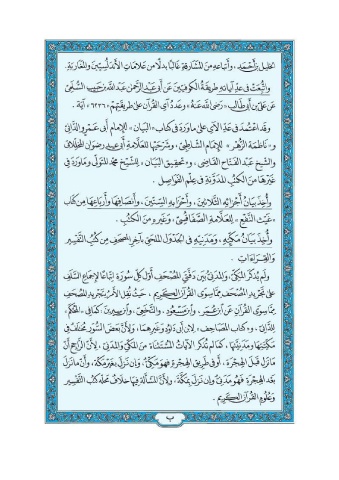 الخليل بن أحمد ، وأتباعه من المشارقة غالبًا بدلًا من علامات الأندلسيين والمغاربة.
واتُّبعت في عدّ آياته طريقة الكوفيين عن أبي عبد الرحمن عبد الله بن حبيب السُّلمي
عن علي بن أبي طالب «رضي الله عنه» وعدد آي القرآن على طريقتهم «٦٢٣٦» آية .
وقد اعتُمد في عدّ الآي على ما ورد في كتاب «البيان» للإمام أبي عمرو الداني
و«ناظمة الزهر» للإمام الشاطبي، وشرحيها للعلامة أبي عيد رضوان المخللاتي
والشيخ عبد الفتاح القاضي ، و«تحقيق البيان» للشيخ محمد المتولي وما ورد في
غيرها من الكتب المدوّنة في علم الفواصل .
وأُخذ بيان أجزائه الثلاثين، وأحزابه الستين، وأنصافها وأرباعها من كتاب
«غيث النفع» للعلامة الصفاقسي، وغيره من الكتب .
وأُخذ بيان مكيّه ، ومدنيّه في الجدول الملحق بآخر المصحف من كتب التفسير
والقراءات .
ولم يُذكر المكي، والمدني بين دفتي المصحف أول كل سورة اتباعًا لإجماع السلف
على تجريد المصحف مما سوى القرآن الكريم ، حيث نُقل الأمر بتجريد المصحف
مما سوى القرآن عن ابن عمر ، وابن مسعود ، والنخعي ، وابن سيرين، كما في «المحكم»
للداني ، و«كتاب المصاحف» لابن أبي داود وغيرهما ، ولأن بعض السور مختلف في
مكيتها ومدنيتها ، كما لم تُذكر الآيات المستثناة من المكي والمدني ، لأن الراجح أن
ما نزل قبل الهجرة ، أو في طريق الهجرة فهو مكي، وإن نزل بغير مكة، وأن ما نزل
بعد الهجرة فهو مدني وإن نزل بمكة، ولأن المسألة فيها خلاف محله كتب التفسير
وعلوم القرآن الكريم .
ب